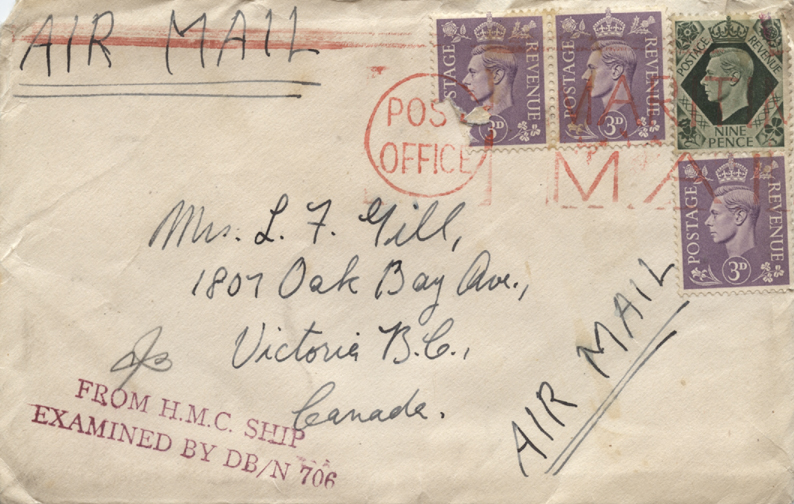 AIR MAIL
POSTAGE REVENUE 3D
POSTAGE REVENUE 3D
POSTAGE REVENUE NINE PENCE
POSTAGE REVENUE 3D
POST OFFICE
MARITI
MAI
Mrs. L. F. Gill,
1807 Oak Bay Ave.,
Victoria B.C.,
Canada.
AIR MAIL
FROM H.M.C. SHIP
EXAMINED BY DB/N 706